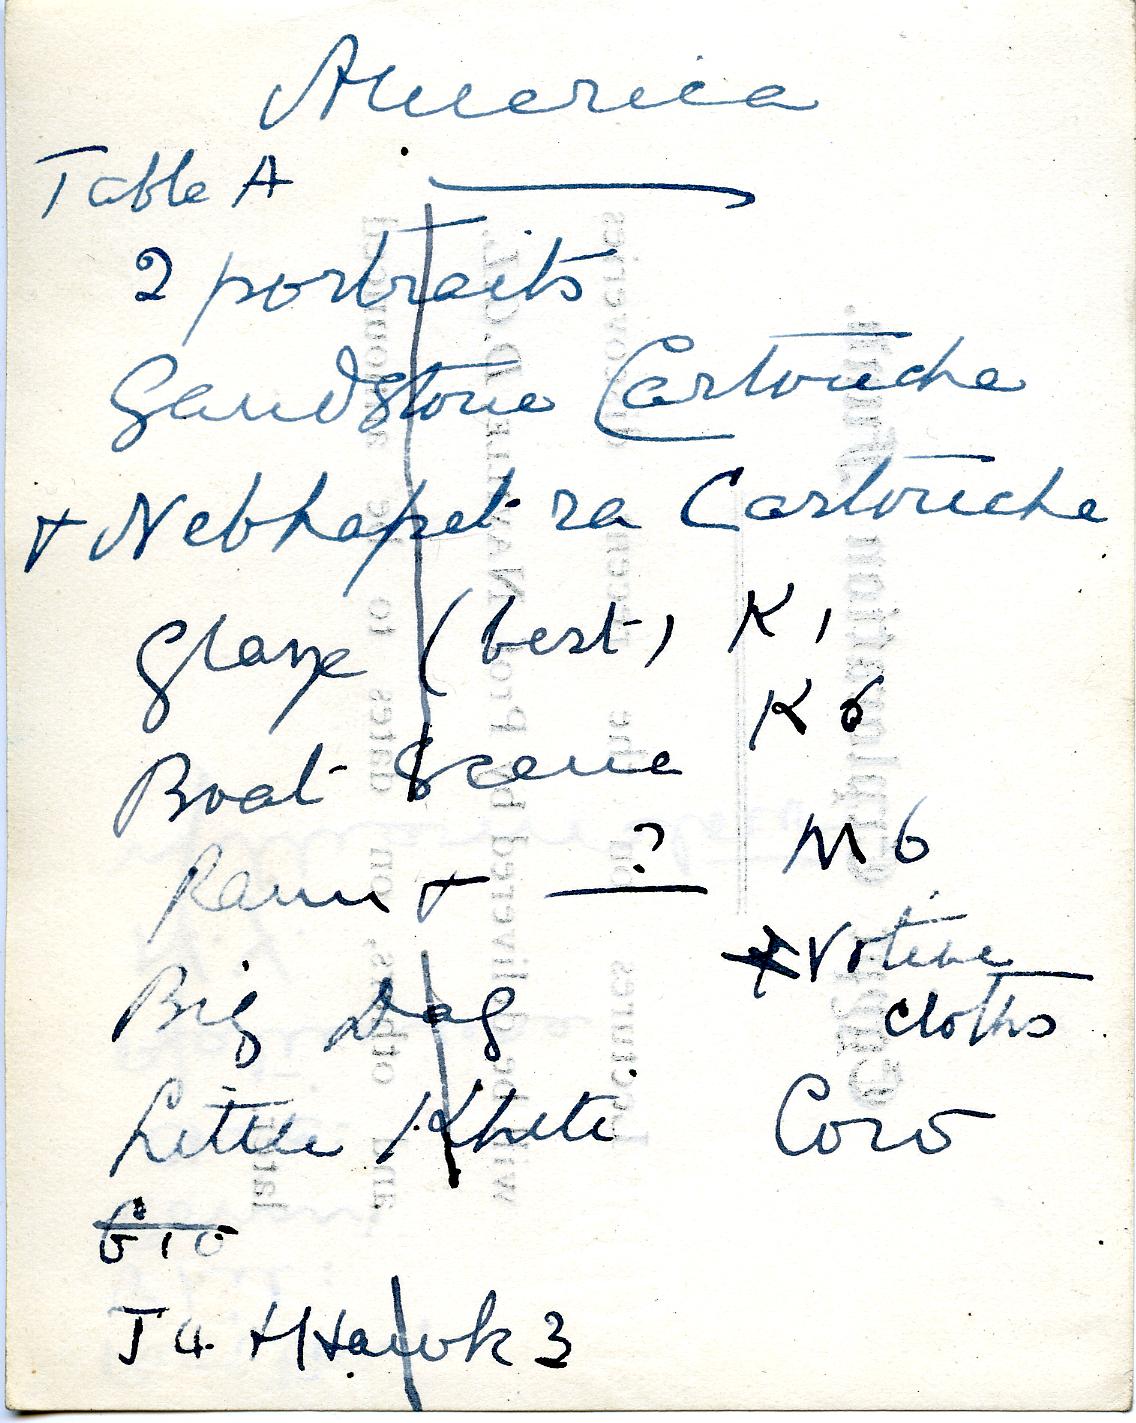 America
Table A
2 portraits
Sandstone Cartouche
+ Nebhapet-ra Cartouche
Glaze (best) K1
K6
Boat Scene
M6
Ram + ?
+ Votive
cloths
Big Dog
Little Kheti
Coro
G10
J4. H Hawk 3